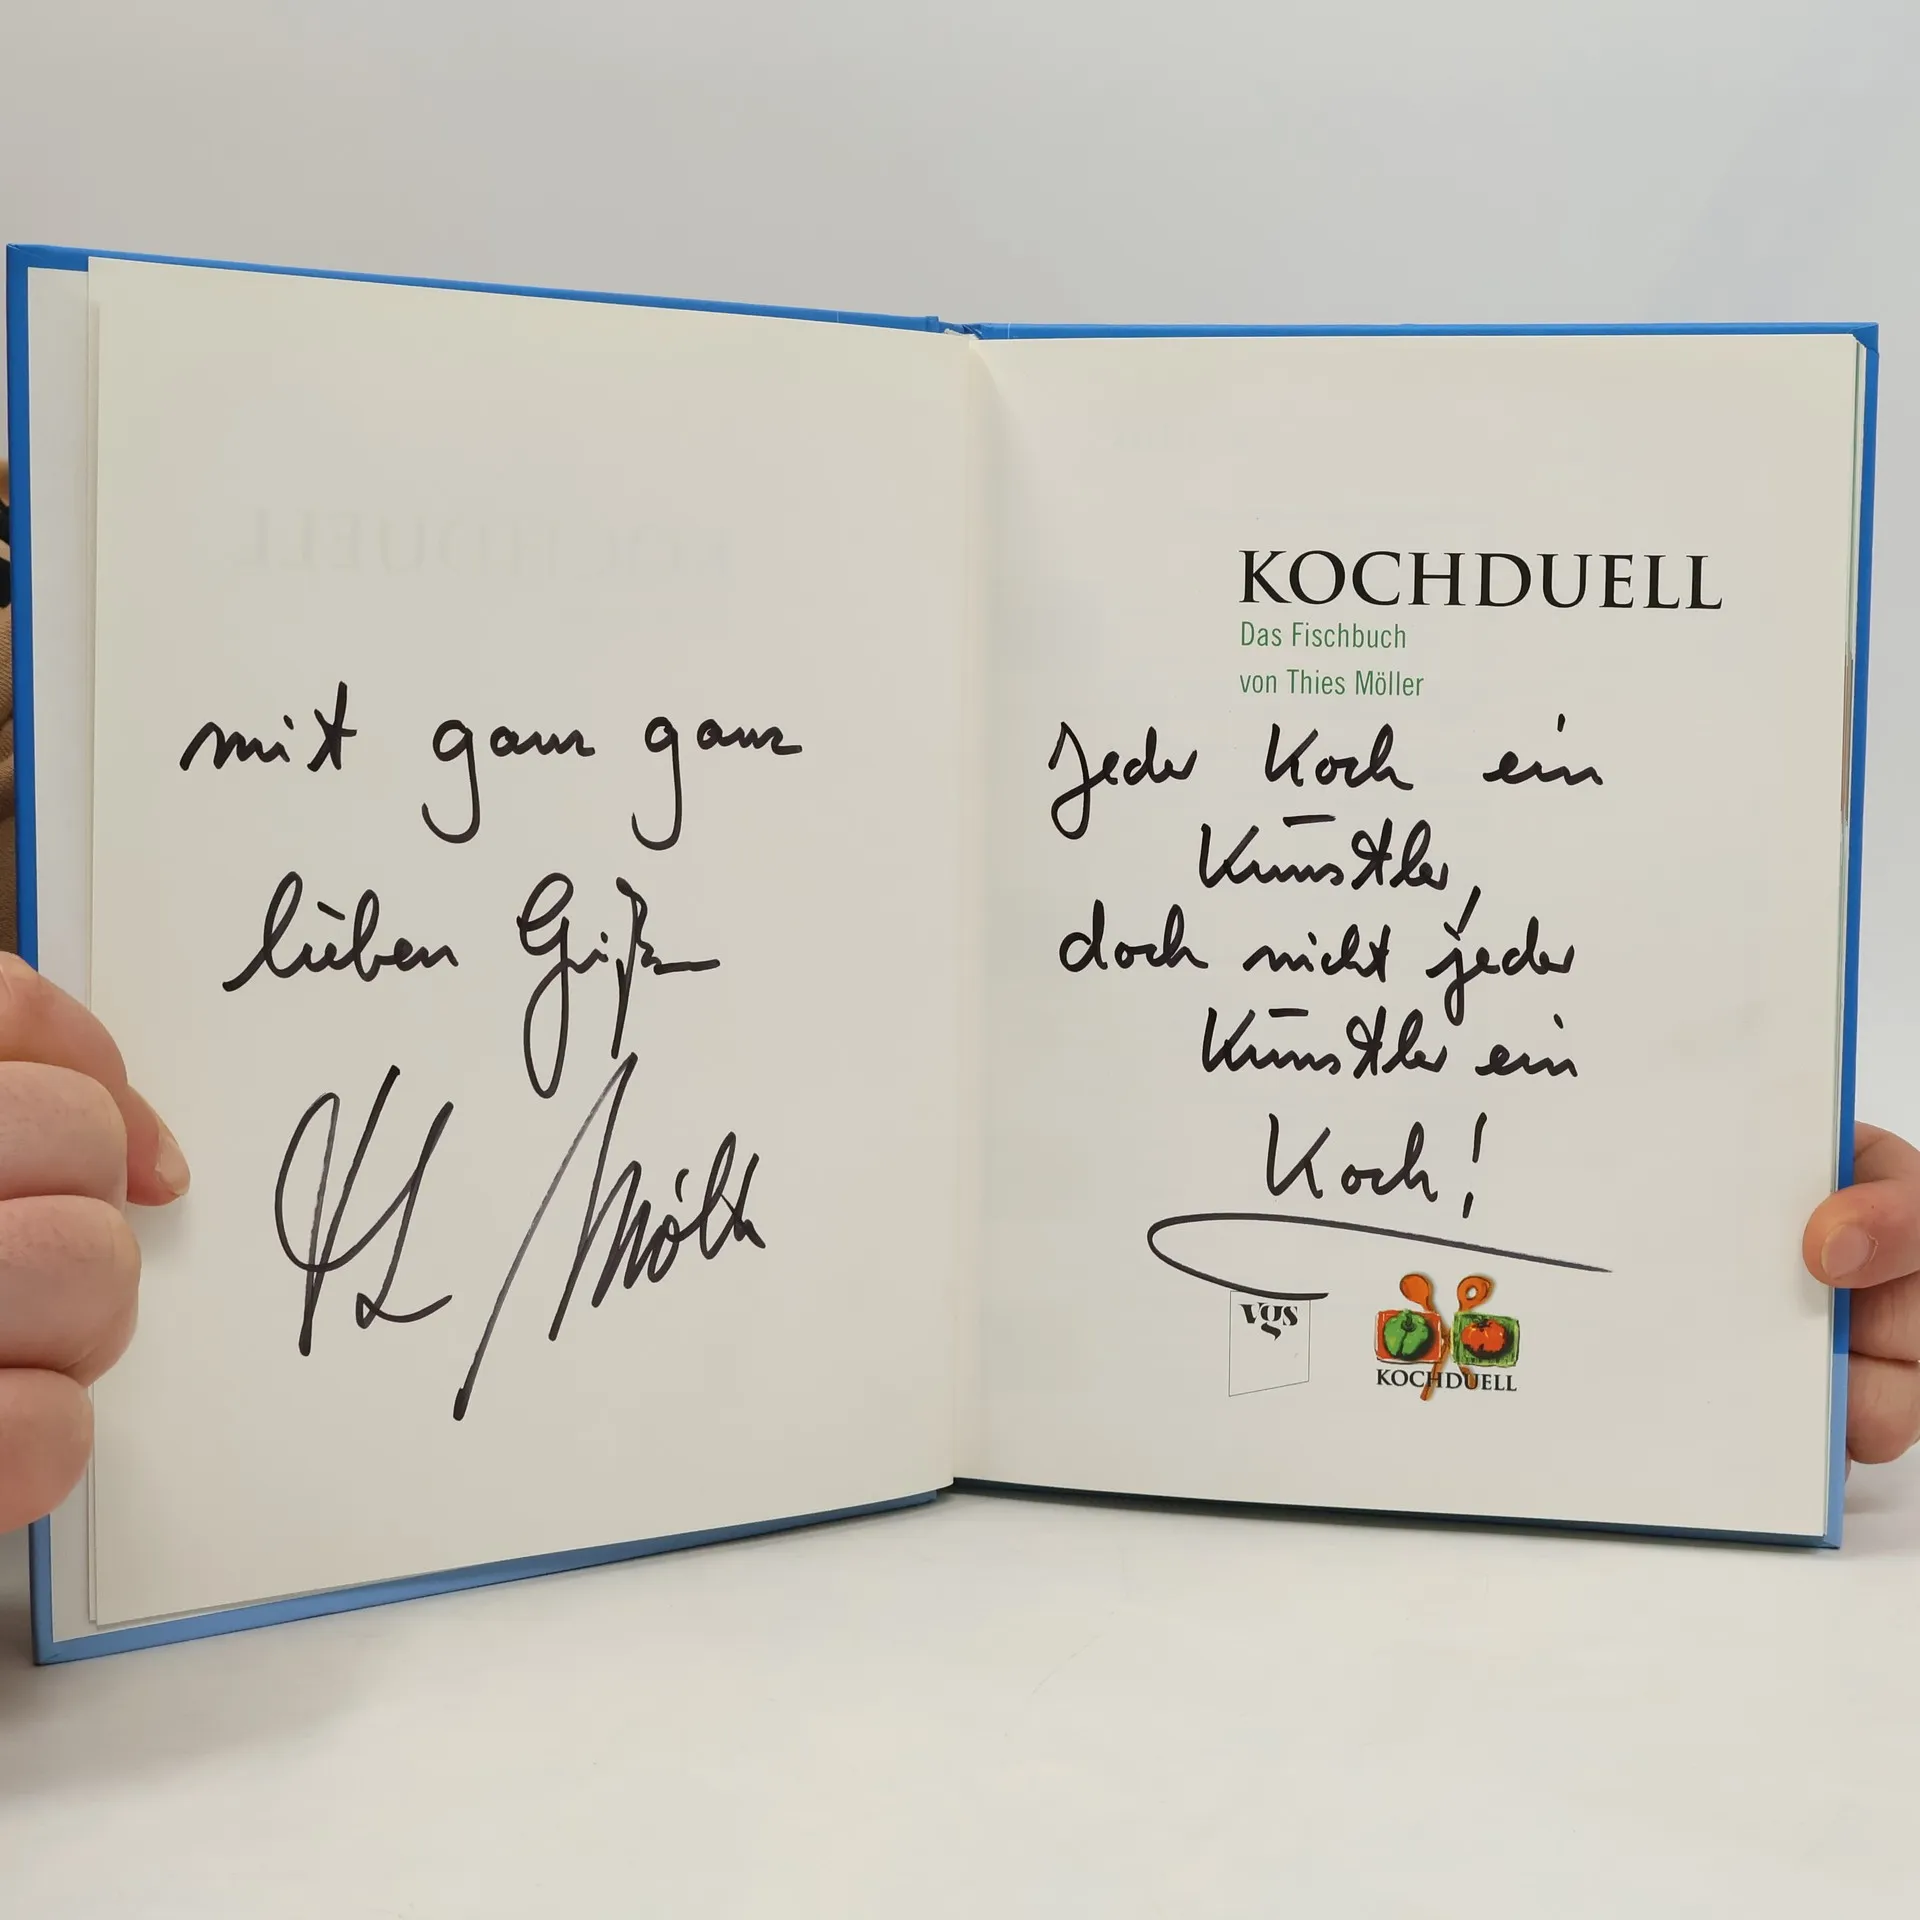 mit ganz ganz
lieben Grüßen
Möller
KOCHDUELL
Das Fischbuch
von Thies Möller
Jeder Koch ein
Künstler,
doch nicht jeder
Künstler ein
Koch!
vgs
KOCHDUELL